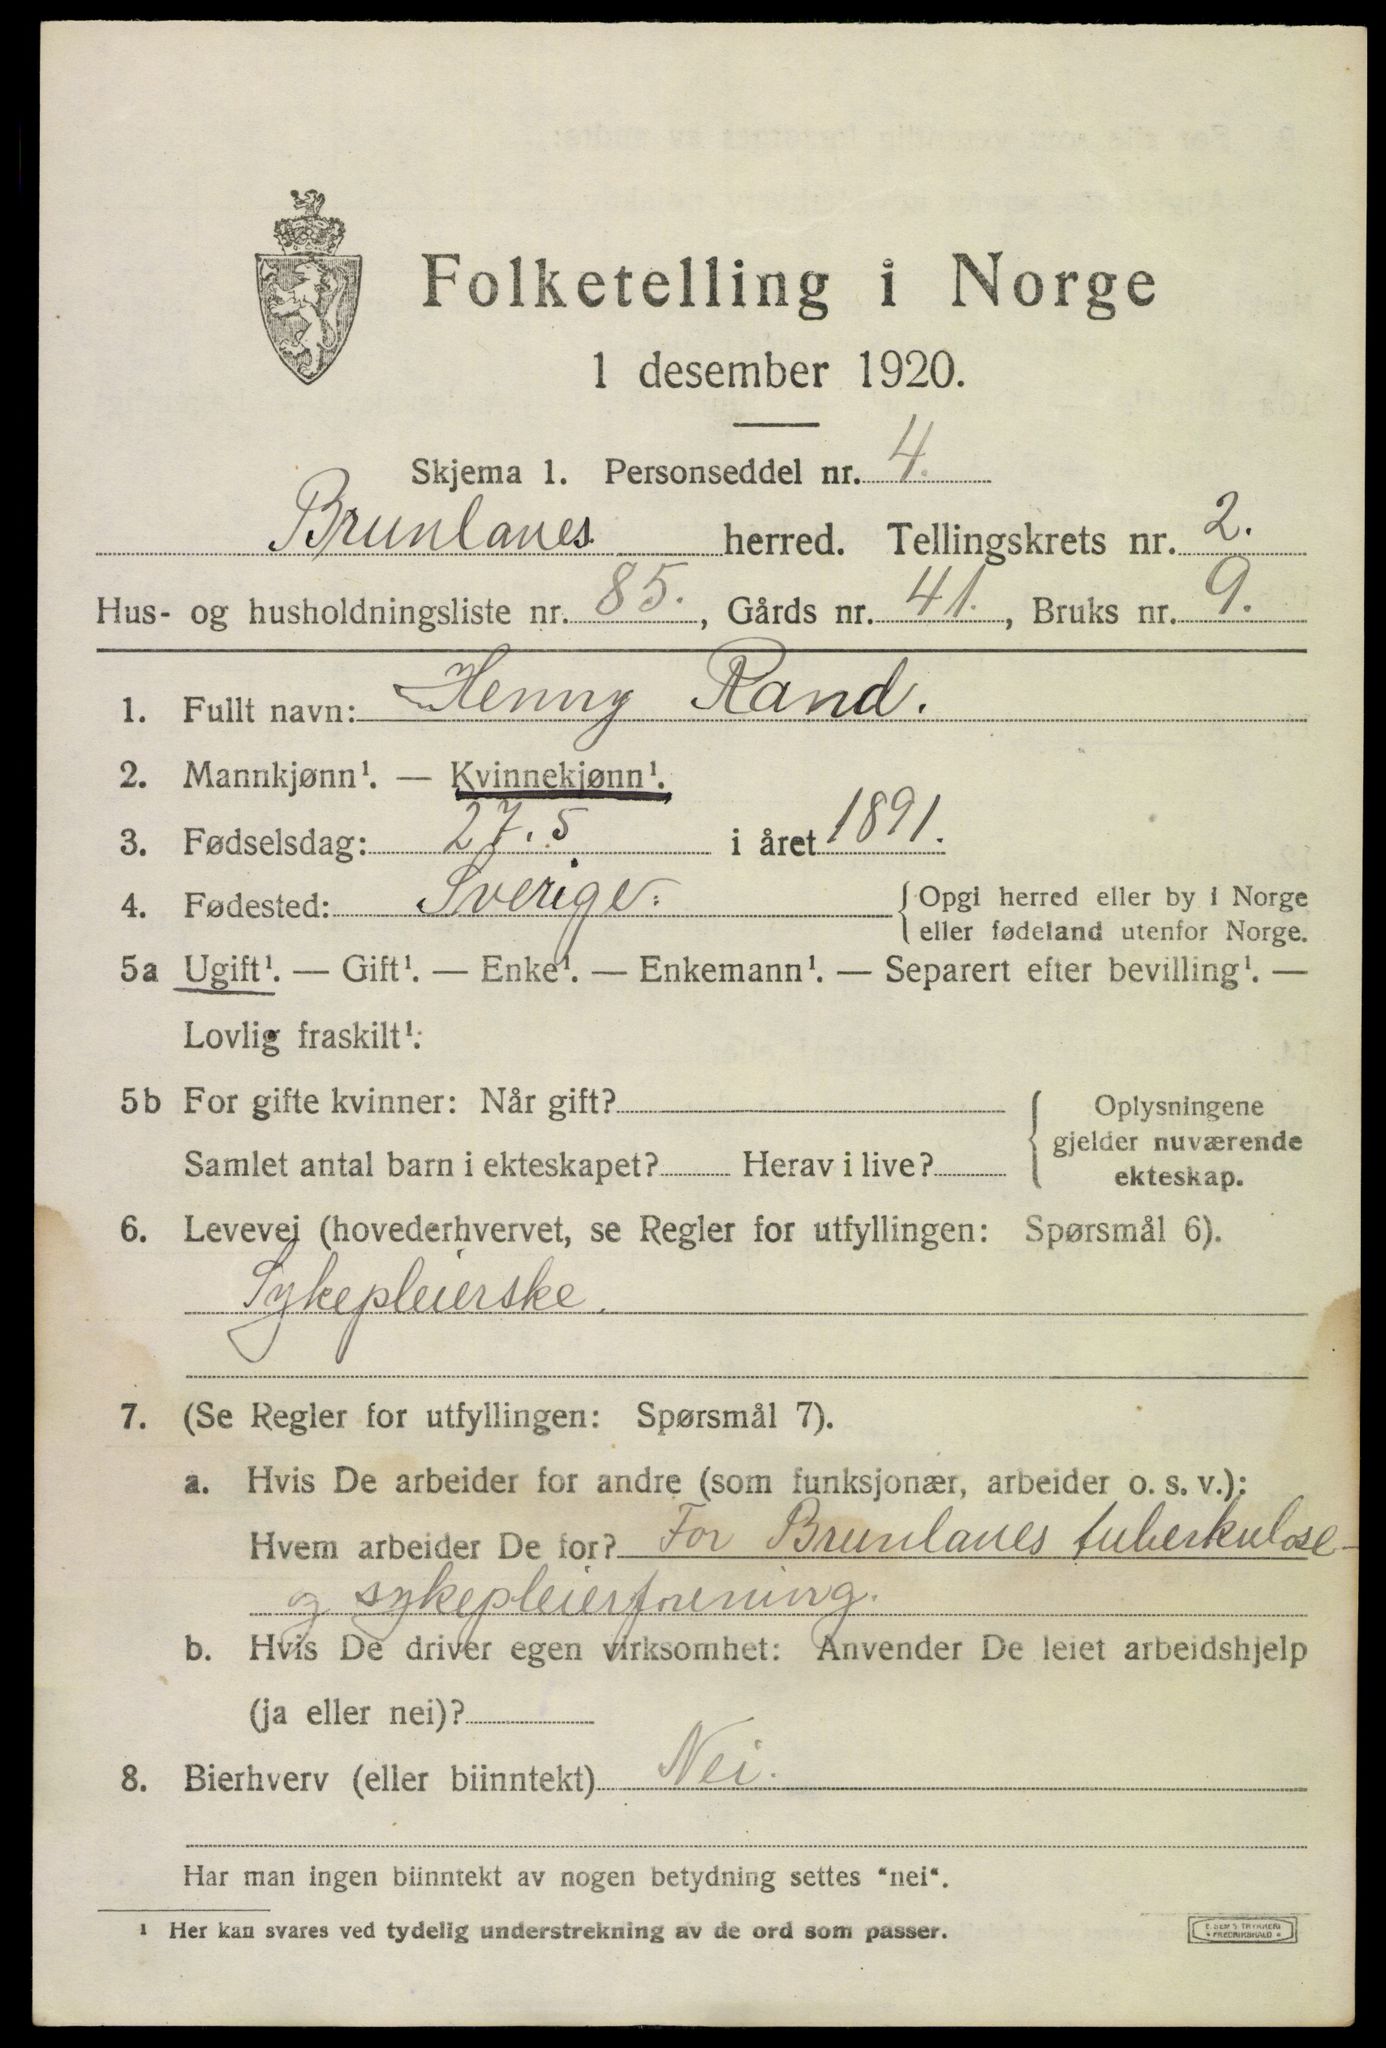 Folketelling i Norge
1 desember 1920.
Skjema 1. Personseddel nr. 4.
Brunlanes herred. Tellingskrets nr. 2.
Hus- og husholdningsliste nr. 85., Gårds nr. 41., Bruks nr. 9.
1. Fullt navn: Henny Rand.
2. Mannkjønn¹. — Kvinnekjønn¹.
3. Fødselsdag: 27.5 i året 1891.
4. Fødested: Sverige. { Opgi herred eller by i Norge
eller fødeland utenfor Norge.
5a Ugift¹. — Gift¹. — Enke¹. — Enkemann¹. — Separert efter bevilling¹. —
Lovlig fraskilt¹.
5b For gifte kvinner: Når gift? { Oplysningene
gjelder nuværende
Samlet antal barn i ekteskapet? Herav i live?
ekteskap.
6. Levevei (hovederhvervet, se Regler for utfyllingen: Spørsmål 6).
Sykepleierske.
7. (Se Regler for utfyllingen: Spørsmål 7).
a. Hvis De arbeider for andre (som funksjonær, arbeider o. s. v.):
Hvem arbeider De for? For Brunlanes tuberkulose-
og sykepleierforening.
b. Hvis De driver egen virksomhet: Anvender De leiet arbeidshjelp
(ja eller nei)?
8. Bierhverv (eller biinntekt) Nei.
Har man ingen biinntekt av nogen betydning settes “nei“.
¹ Her kan svares ved tydelig understrekning av de ord som passer.
E. SEM'S TRYKKERI
* FREDRIKSHALD *